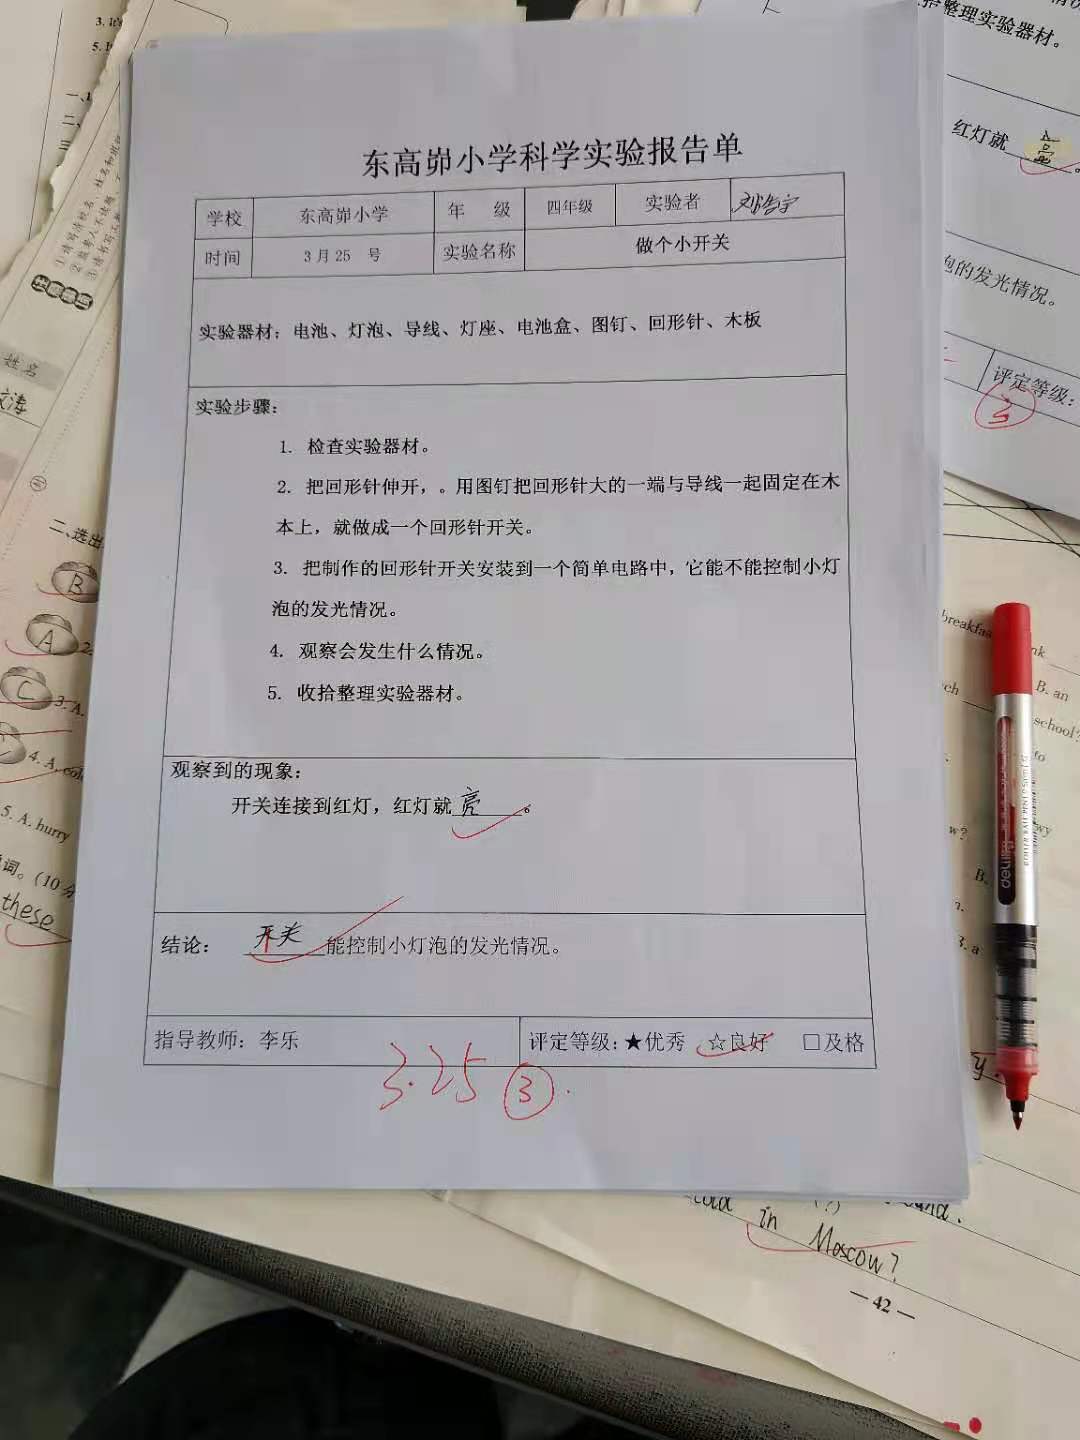 东高峁小学科学实验报告单
学校 东高峁小学 年 级 四年级 实验者
时间 3月25 号 实验名称 做个小开关
实验器材：电池、灯泡、导线、灯座、电池盒、图钉、回形针、木板
实验步骤：
1. 检查实验器材。
2. 把回形针伸开，。用图钉把回形针大的一端与导线一起固定在木
本上，就做成一个回形针开关。
3. 把制作的回形针开关安装到一个简单电路中，它能不能控制小灯
泡的发光情况。
4. 观察会发生什么情况。
5. 收拾整理实验器材。
观察到的现象：
开关连接到红灯，红灯就亮。
结论： 开关能控制小灯泡的发光情况。
指导教师：李乐 评定等级：★优秀 ☆良好 □及格
3.25 ③
拾整理实验器材。
红灯就 亮。
泡的发光情况。
评定等级：
姓名
二、选出
B
A
C
3. A.
4. A.
5. A. hurry
词。(10分
these
B. an
school?
to
B.
deli
in Moscow?
— 42 —